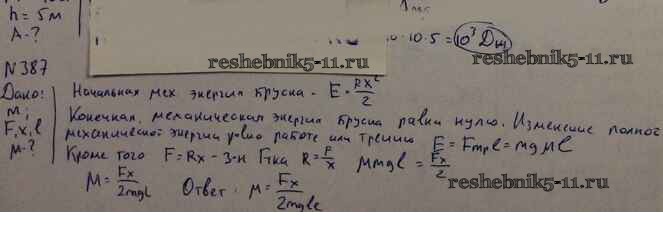 h = 5м
A - ?
·10·5 = 10³ Дж
reshebnik5-11.ru
N 387
reshebnik5-11.ru
Дано:
Начальная мех. энергия бруска - E = Rx²/2
m;
F, x, l
M - ?
Конечная, механическая энергия бруска равна нулю. Изменение полной
механической энергии равно работе силы трения E = Fтрl = mgMl
Кроме того F = Rx - з-н Гука R = F/x Mmgl = Fx/2
M = Fx/2mgl Ответ: M = Fx/2mgl
reshebnik5-11.ru